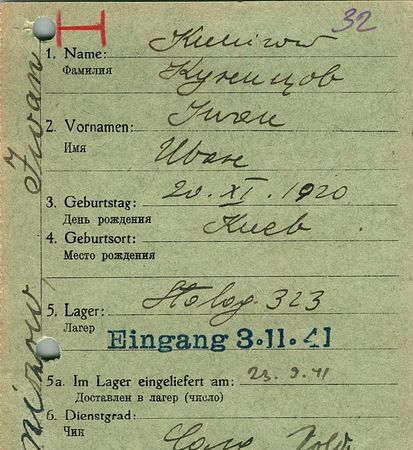 32
1. Name:
Фамилия
Куницов
2. Vornamen: Iwan
Имя
Иван
3. Geburtstag: 20. XI. 1920
День рождения
Киев
4. Geburtsort:
Место рождения
5. Lager: Stalag. 323
Лагер
Eingang 3.11.41
5a. Im Lager eingeliefert am: 23.9.41
Доставлен в лагер (число)
6. Dienstgrad:
Чин
Iwan